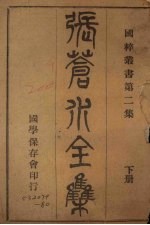 國粹叢書第二集
張蒼水全集
下册
國學保存會印行